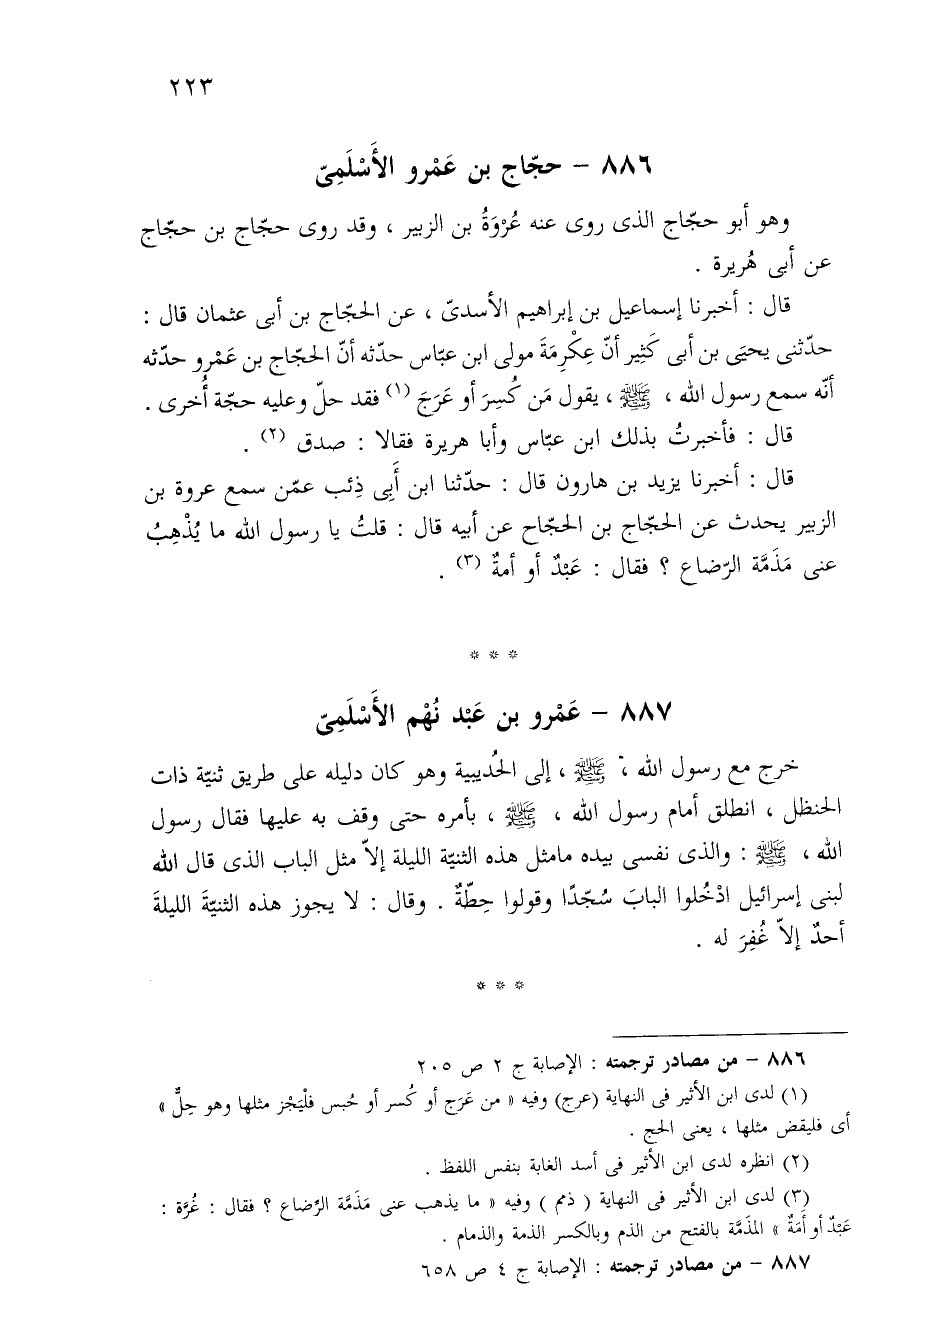 ٢٢٣
٨٨٦ - حجّاج بن عَمْرو الأَسْلَمِىّ
وهو أبو حجّاج الذى روى عنه عُرْوَةُ بن الزبير ، وقد روى حجّاج بن حجّاج
عن أبى هُريرة .
قال : أخبرنا إسماعيل بن إبراهيم الأسدىّ ، عن الحجّاج بن أبى عثمان قال :
حدّثنى يحيَى بن أبى كَثِير أنّ عِكْرِمَةَ مولى ابن عبّاس حدّثه أنّ الحجّاج بن عَمْرو حدّثه
أنّه سمع رسول الله ، ﷺ ، يقول مَن كُسِرَ أو عَرَجَ (١) فقد حلّ وعليه حجّة أُخرى .
قال : فأخبرتُ بذلك ابن عبّاس وأبا هريرة فقالا : صدق (٢) .
قال : أخبرنا يزيد بن هارون قال : حدّثنا ابن أَبِى ذِئب عمّن سمع عروة بن
الزبير يحدث عن الحجّاج بن الحجّاح عن أبيه قال : قلتُ يا رسول الله ما يُذْهِبُ
عنى مَذَمَّة الرّضاع ؟ فقال : عَبْدٌ أو أمةٌ (٣) .
* * *
٨٨٧ - عَمْرو بن عَبْد نُهْم الأَسْلَمِىّ
خرج مع رسول الله ، ﷺ ، إلى الحُديبية وهو كان دليله على طريق ثنيّة ذات
الحنظل ، انطلق أمام رسول الله ، ﷺ ، بأمره حتى وقف به عليها فقال رسول
الله ، ﷺ : والذى نفسى بيده مامثل هذه الثنيّة الليلة إلاّ مثل الباب الذى قال الله
لبنى إسرائيل ادْخُلوا البابَ سُجّدًا وقولوا حِطّةٌ . وقال : لا يجوز هذه الثنيّةَ الليلةَ
أحدٌ إلاّ غُفِرَ له .
* * *
٨٨٦ - من مصادر ترجمته : الإصابة ج ٢ ص ٢٠٥
(١) لدى ابن الأثير فى النهاية (عرج) وفيه « من عَرَج أو كُسر أو حُبس فلْيَجْز مثلها وهو حِلٌّ »
أى فليقض مثلها ، يعنى الحج .
(٢) انظره لدى ابن الأثير فى أسد الغابة بنفس اللفظ .
(٣) لدى ابن الأثير فى النهاية ( ذمم ) وفيه « ما يذهب عنى مَذَمَّة الرِّضاع ؟ فقال : غُرَّة :
عَبْدٌ أو أَمَةٌ » المذَمَّة بالفتح من الذم وبالكسر الذمة والذمام .
٨٨٧ - من مصادر ترجمته : الإصابة ج ٤ ص ٦٥٨